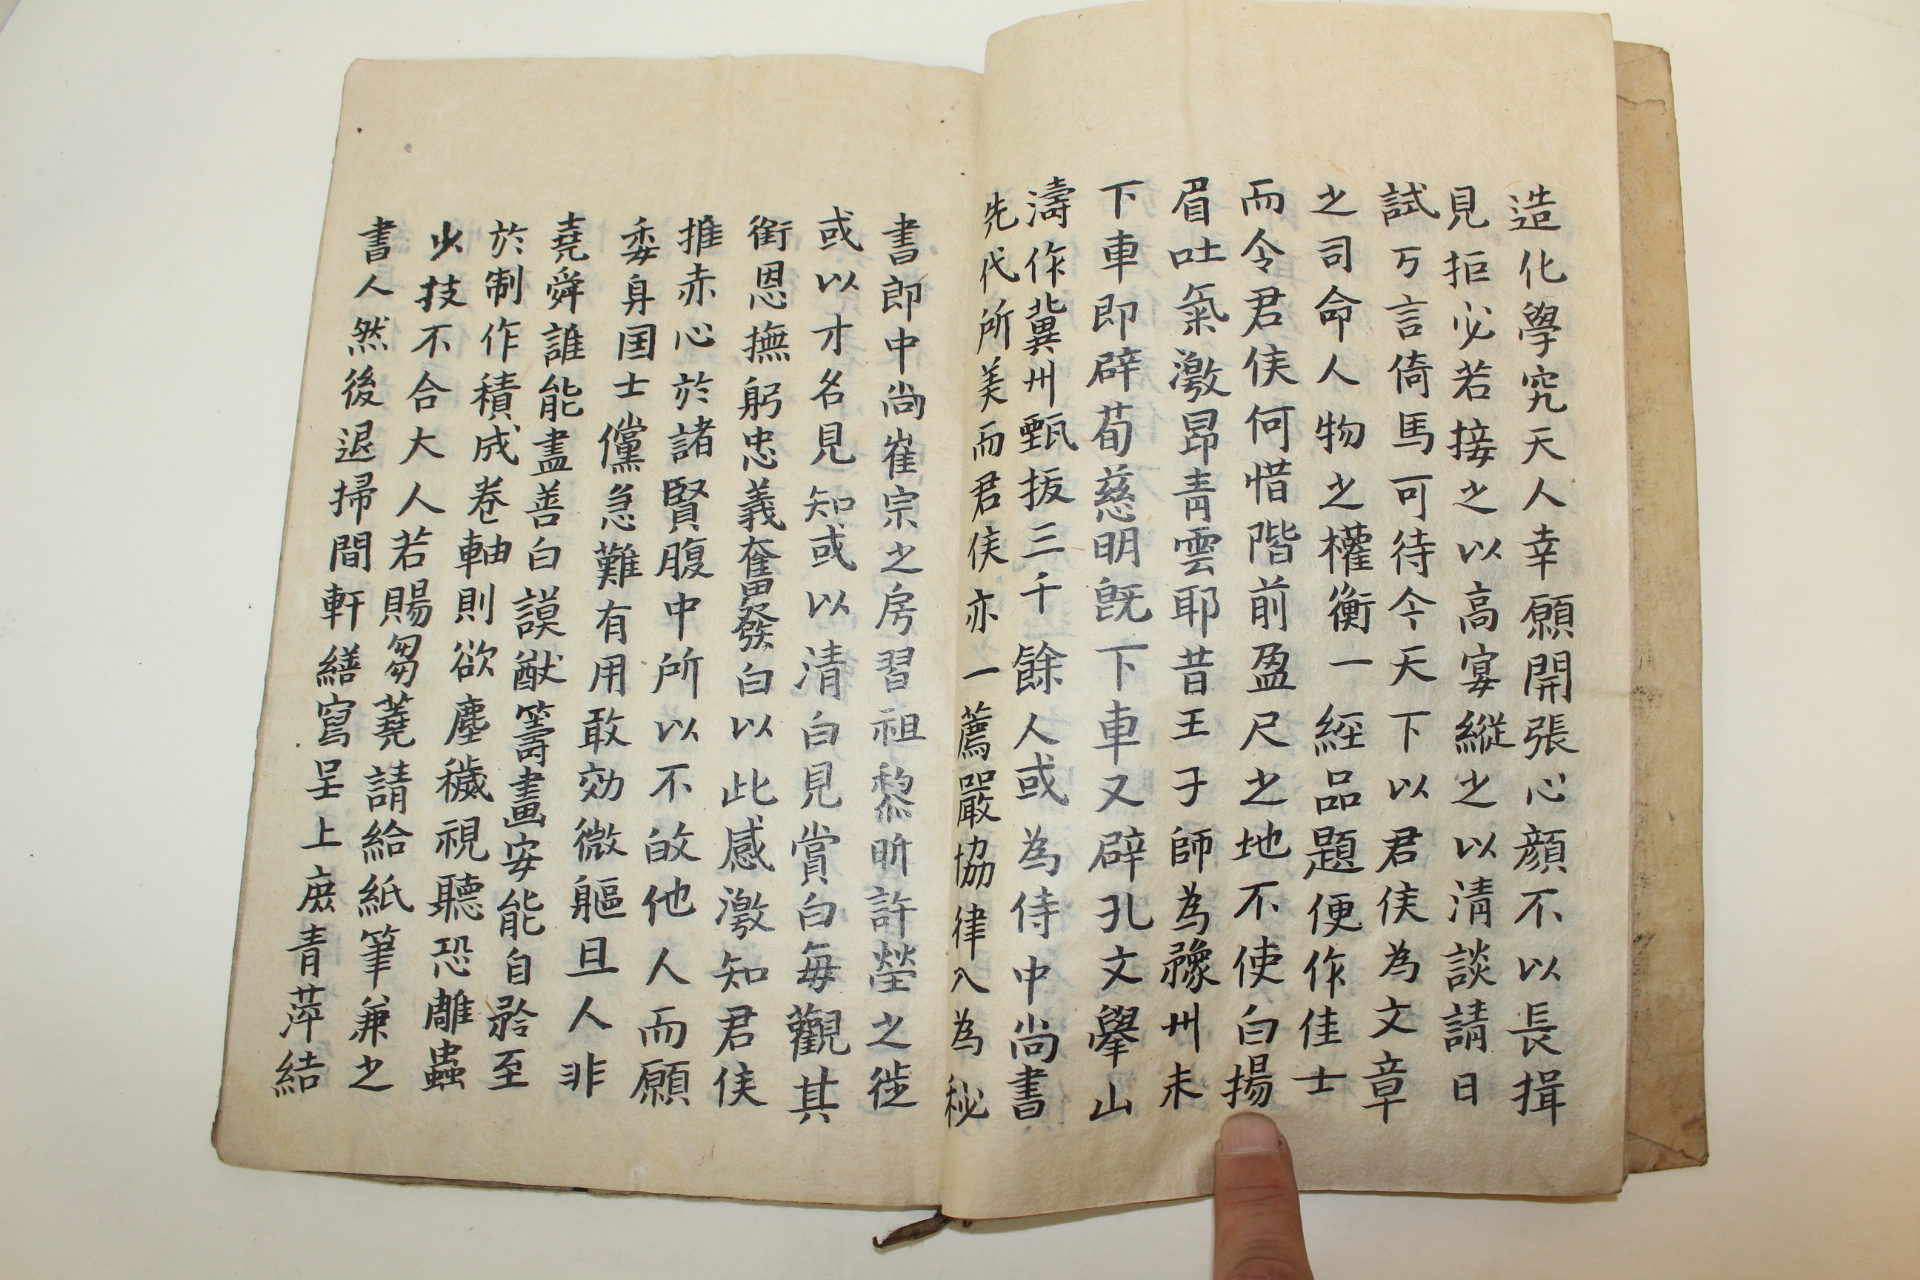 造化學究天人幸願開張心顔不以長揖
見拒必若接之以高宴縱之以清談請日
試万言倚馬可待今天下以君侯為文章
之司命人物之權衡一經品題便作佳士
而今君侯何惜階前盈尺之地不使白揚
眉吐氣激昂青雲耶昔王子師為豫州未
下車即辟荀慈明旣下車又辟孔文擧山
濤作冀州甄拔三千餘人或為侍中尚書
先代所美而君侯亦一薦嚴協律入為秘
書郎中尚崔宗之房習祖黎昕許瑩之徙
或以才名見知或以清白見賞白每觀其
銜恩撫躬忠義奮發白以此感激知君侯
推赤心於諸賢腹中所以不㱕他人而願
委身国士儻急難有用敢効微軀且人非
堯舜誰能盡善白謨猷籌畫安能自矜至
於制作積成卷軸則欲塵穢視聽恐雕蟲
少技不合大人若賜芻蕘請給紙筆兼之
書人然後退掃間軒繕寫呈上庶青萍結